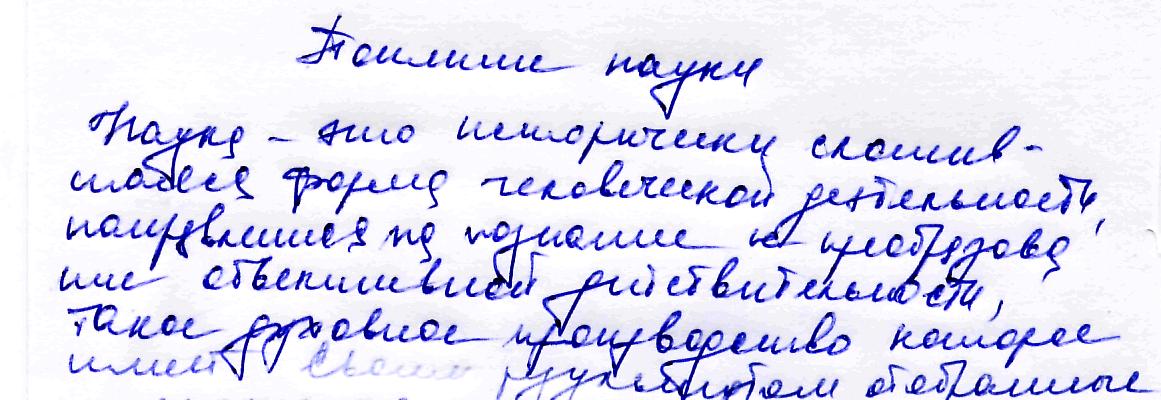 Понятие науки
Наука – это исторически сложив-
шаяся форма человеческой деятельности,
направленная на познание и преобразова
ние объективной действительности,
такое духовное производство которое
имеет своим результатом отобранные